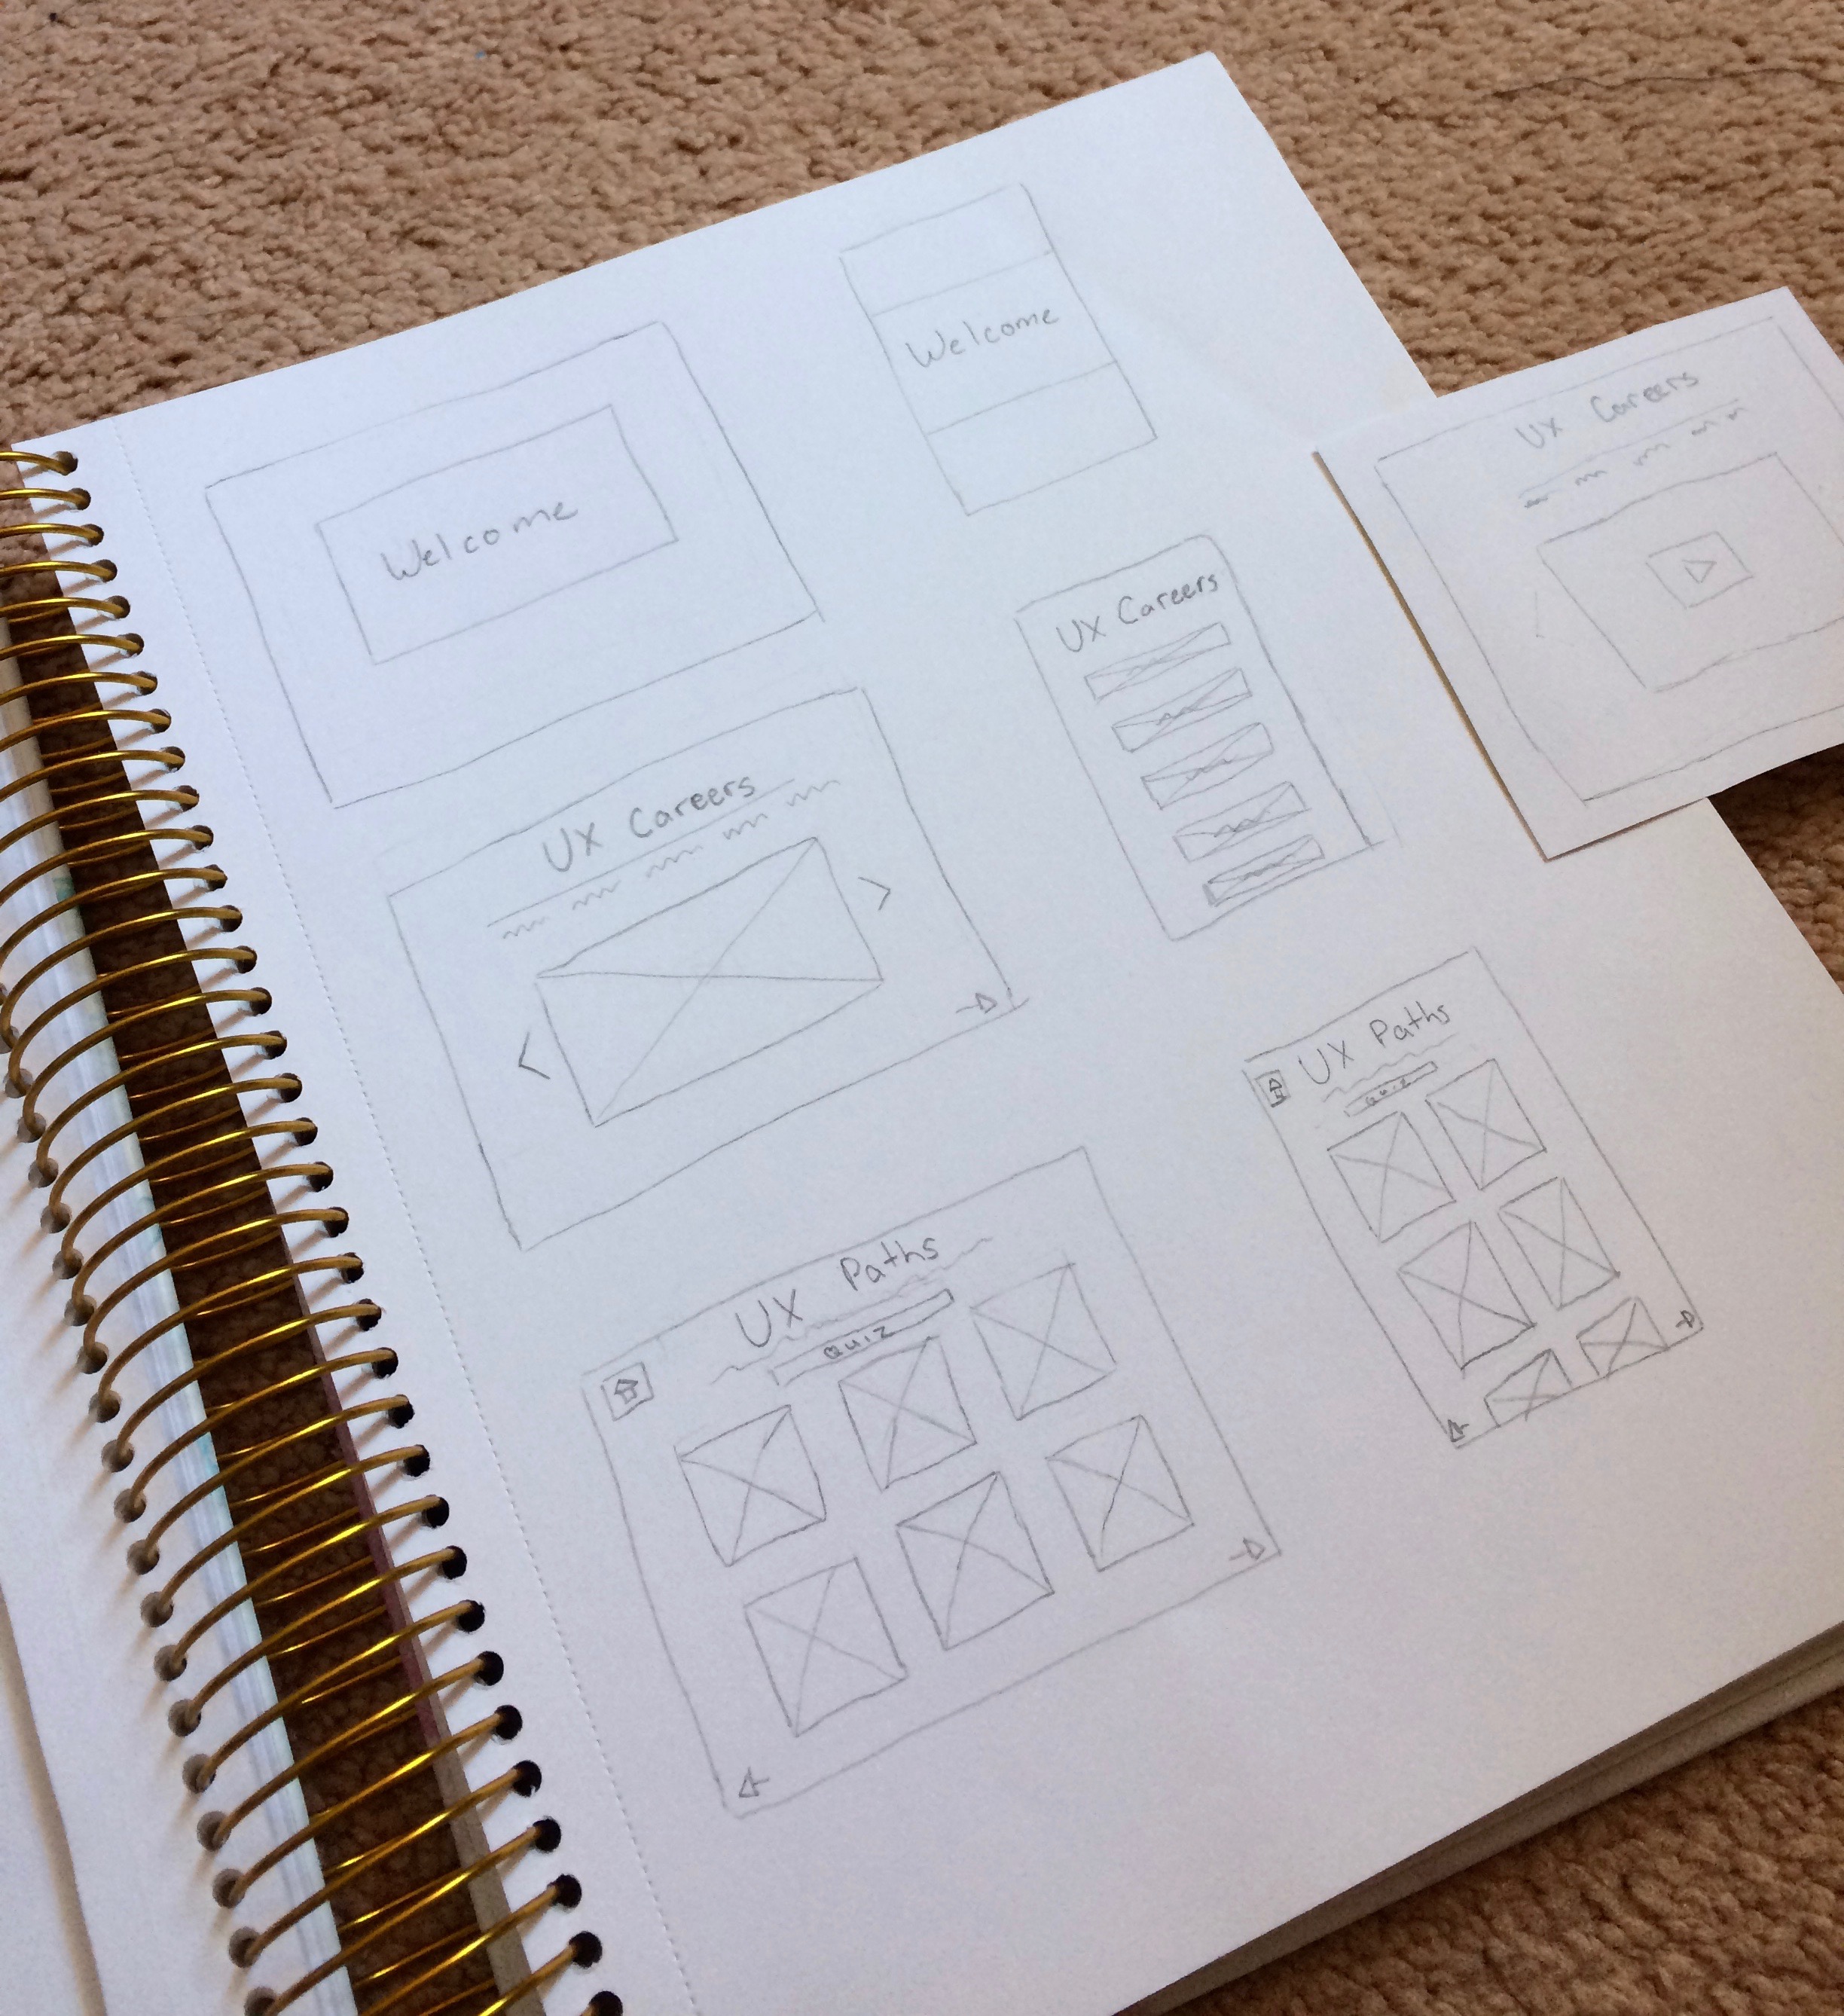 Welcome
Welcome
UX Careers
UX Careers
UX Careers
UX Paths
QUIZ
UX Paths
Quiz